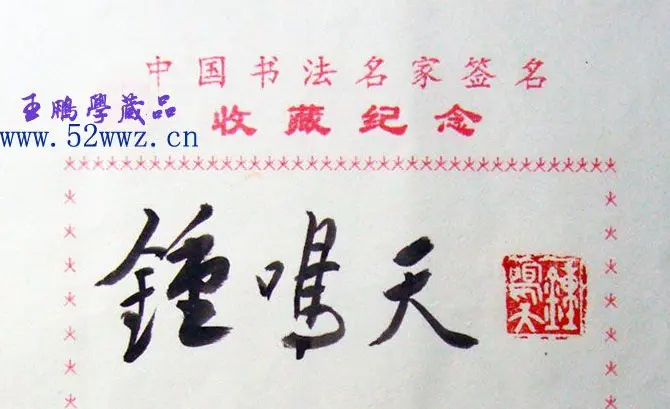 中国书法名家签名
王鹏學藏品
收藏纪念
www.52wwz.cn
鍾鳴天
鍾鳴天